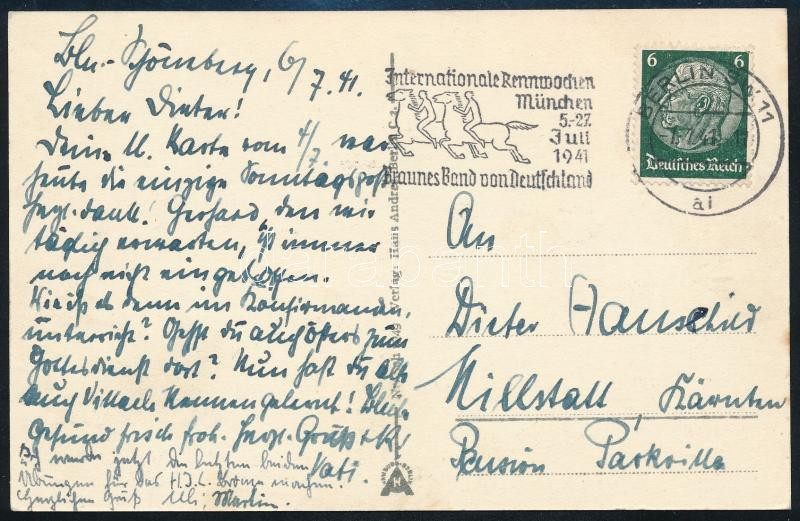 Bln.-Schöneberg, 6/7.41.
Lieber Dieter!
Deine Karte vom 4/7 war
heute die einzige Sonntagspost
herzl. dank! Gerhard, den wir
täglich erwarten, ist immer
noch nicht eingetroffen.
Wie ist es denn im Konfirmanden,
unterricht? Gehst du auch öfters zum
Gottesdienst dort? Nun hast du also
auch Villach kennengelernt! Bleib
gesund frisch froh. Herzl. Gruß
Vati.
Ich werde jetzt die letzten beiden
Übungen für das machen.
Herzlichen Gruß Martin.
Verlag: Hans Andres, Berlin
Internationale Rennwochen
München
5.-27.
Juli
1941
Braunes Band von Deutschland
6 6
Deutsches Reich
BERLIN SW 11
ai
An
Dieter Hanschild
Millstatt, Kärnten
Pension Parkvilla
darabanth